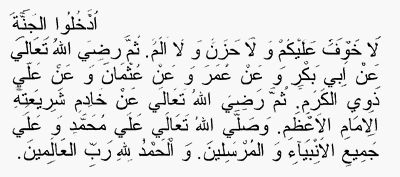 اُدْخُلُوا الجَنَّةَ
لَا خَوْفَ عَلَيْكُمْ وَ لَا حَزَنَ وَ لَا اَلَمَ. ثُمَّ رَضِيَ اللهُ تَعَالَي
عَنْ اَبِي بَكْرٍ وَ عَنْ عُمَرَ وَ عَنْ عُثْمَانَ وَ عَنْ عَلِّيٍ
ذَوِي الكَرَمِ. ثُمَّ رَضِيَ اللهُ تَعَالَي عَنْ خَادِمِ شَرِيعَتِهِ
الإِمَامِ الاَعْظَمِ. وَصَلَّي اللهُ تَعَالَي عَلَي مُحَمَّدٍ وَ عَلَي
جَمِيعِ الاَنْبِيَآءِ وَ المُرْسَلِينَ. وَ الْحَمْدُ لِلهِ رَبِّ العَالَمِينَ.